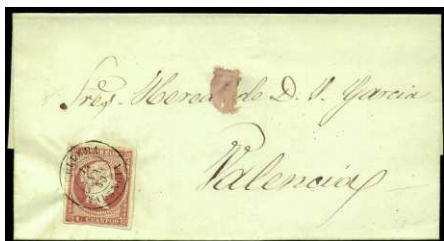 Sres. Hered. de D. V. Garcia
Valencia
CULLERA
4 CUARTOS